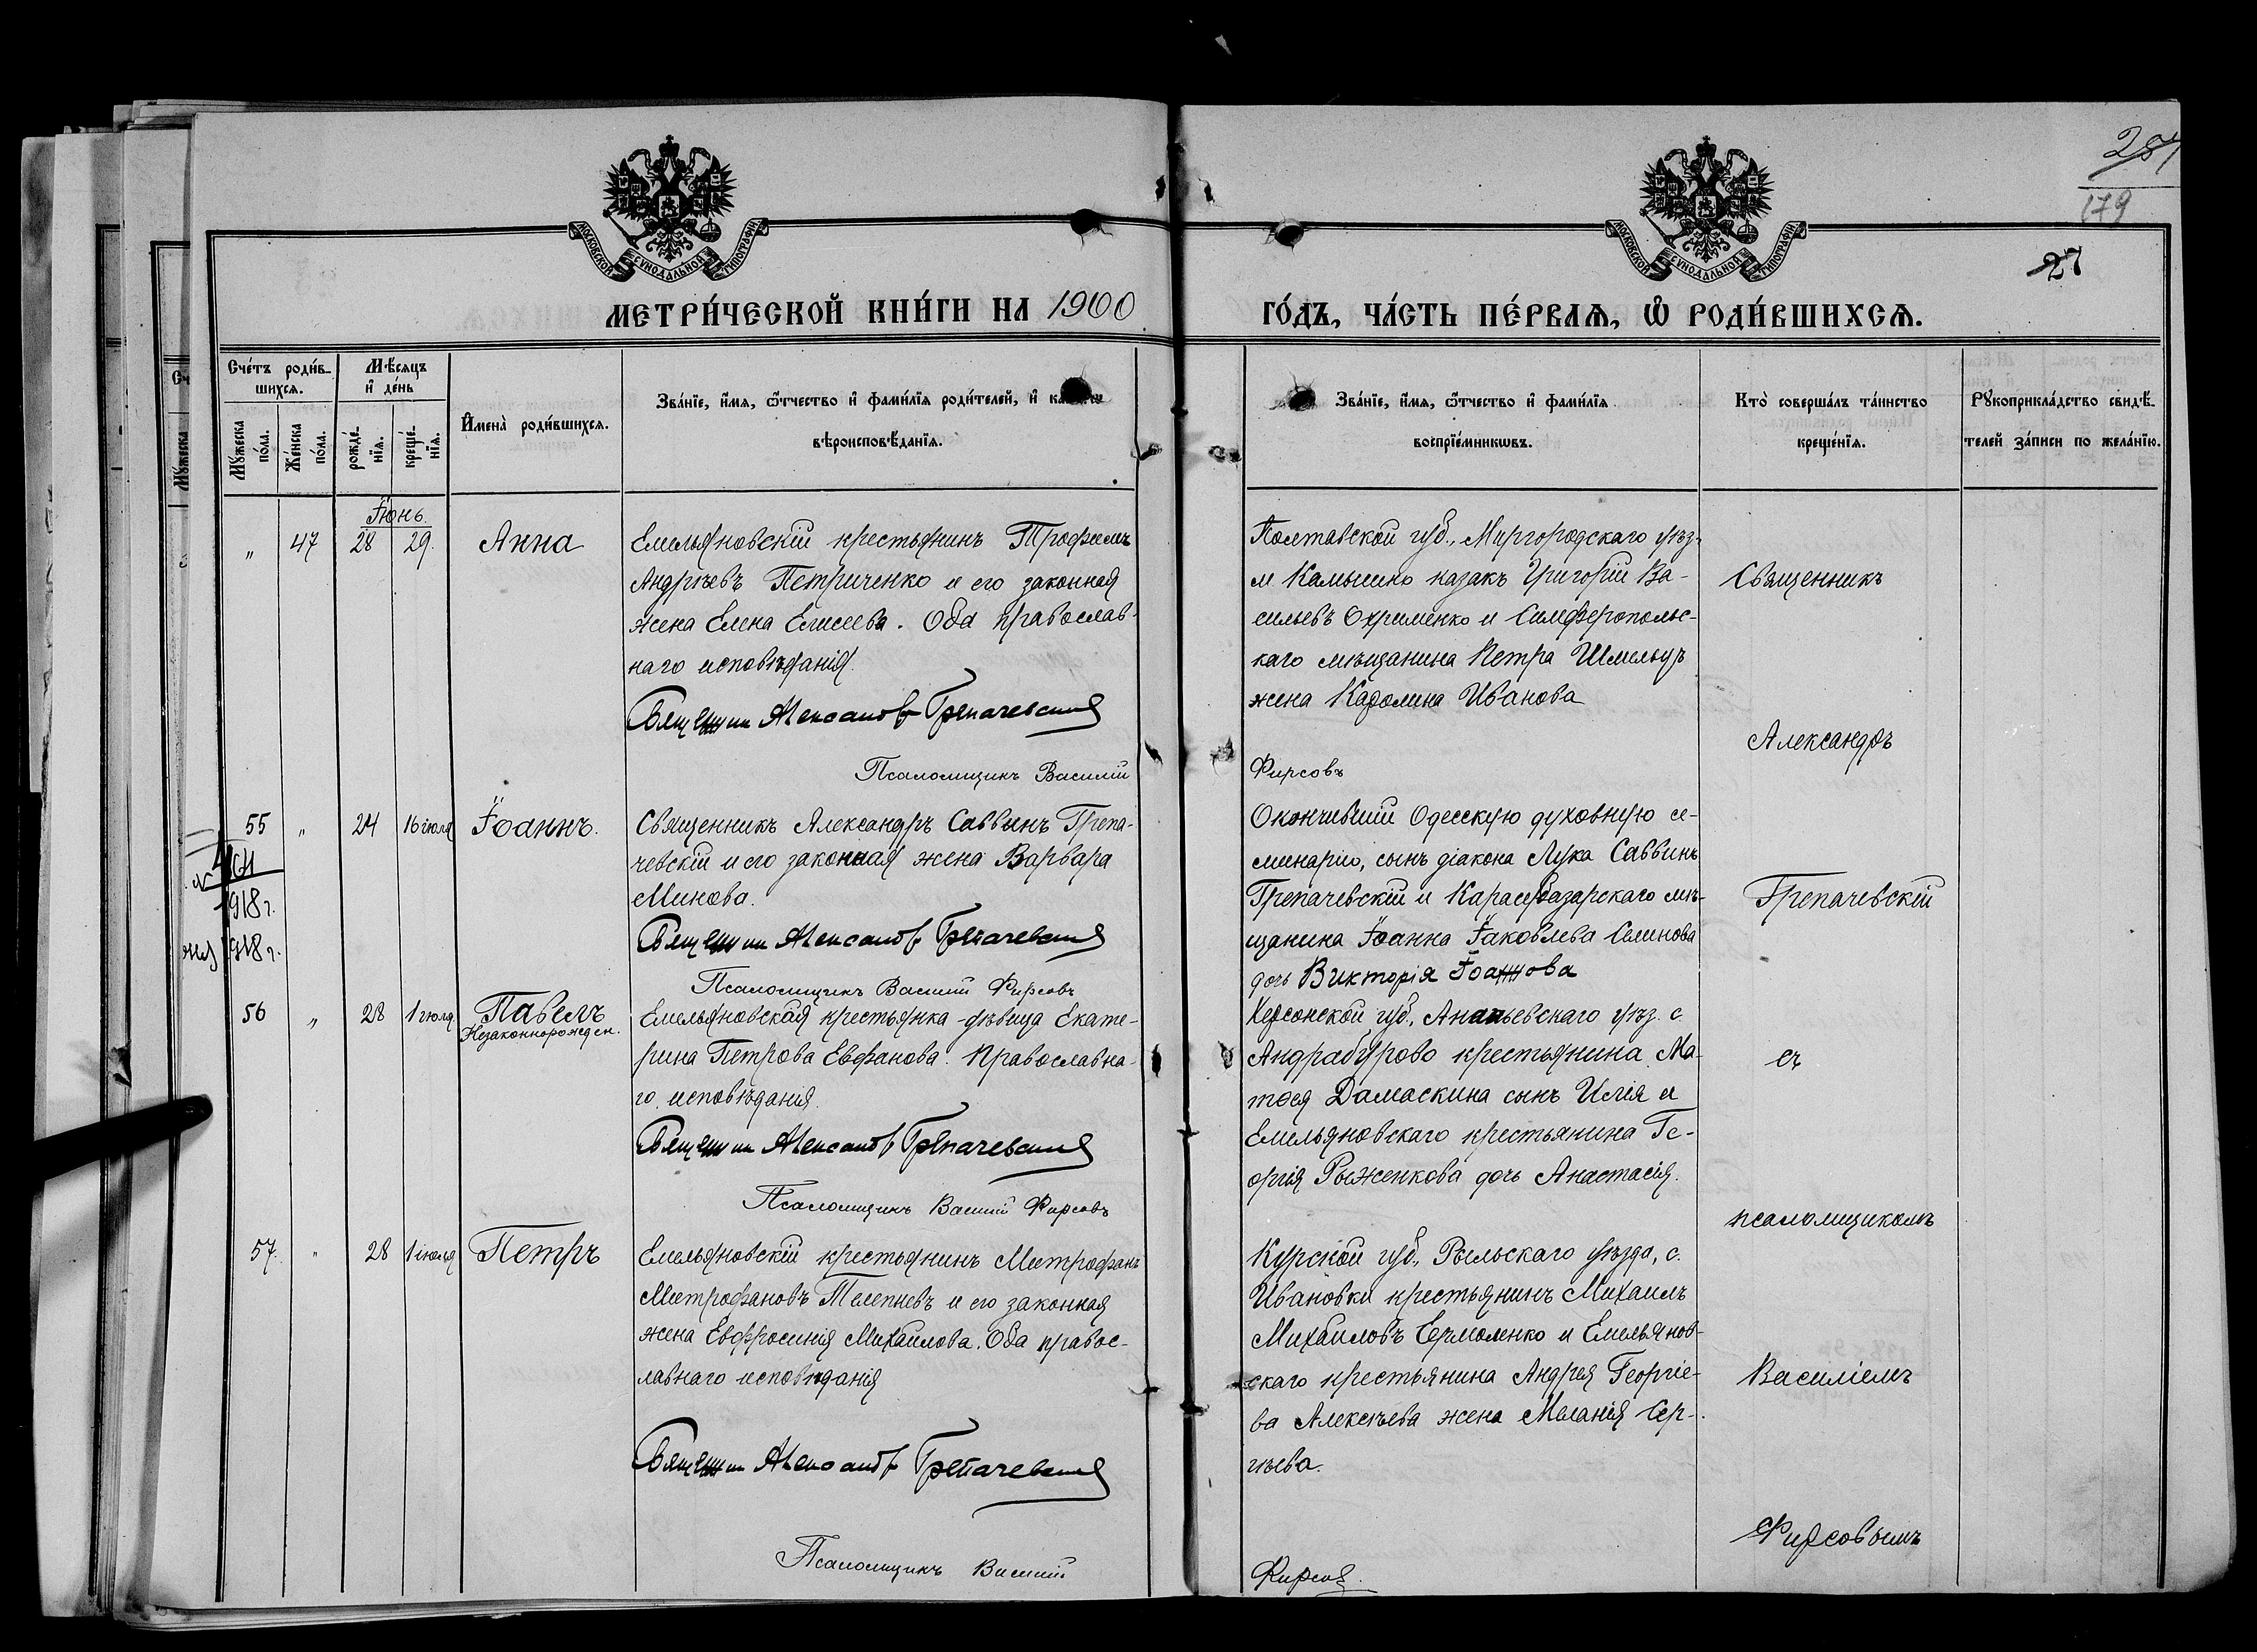 284
179
27
МОСКОВСКОЙ СѴНОДАЛЬНОЙ ТИПОГРАФІИ
МОСКОВСКОЙ СѴНОДАЛЬНОЙ ТИПОГРАФІИ
МЕТРИ́ЧЕСКОЙ КНИ́ГИ НА 1900
ГО́ДЪ, ЧА́СТЬ ПЕ́РВАѦ, Ѡ҆ РОДИ́ВШИХСѦ.
Сче́тъ роди́в-
шихсѧ.
Мѣ́сѧцъ
и҆ де́нь
Мꙋ́жеска по́ла.
Же́нска по́ла.
рожде́-нїѧ.
креще́-нїѧ.
И҆мена̀ роди́вшихсѧ.
Зва́нїе, и҆́мѧ, ѻ҆́тчество и҆ фами́лїѧ роди́телей, и҆
вѣроисповѣ́данїѧ.
Зва́нїе, и҆́мѧ, ѻ҆́тчество и҆ фами́лїѧ
воспрїе́мникѡвъ.
Кто̀ соверша́лъ та́инство
креще́нїѧ.
Рꙋкоприкла́дство свидѣ́-
телей за́писи по жела́нїю.
Іюнь.
„ 47 28 29. Анна
Емельяновскій крестьянинъ Трофимъ
Андреевъ Петриченко и его законная
жена Елена Елисеева. Оба православ-
наго исповѣданія.
Священник Александр Грепачевский
Псаломщикъ Василій
Полтавской губ., Миргородскаго уѣз.
м Камышно казакъ Григорій Ва-
сильевъ Охрименко и Симферопольс-
каго мѣщанина Петра Шмельцъ
жена Каролина Иванова
Фирсовъ
Священникъ
Александръ
Грепачевскій
съ
псаломщикомъ
Василіемъ
Фирсовымъ
55 „ 24 16 іюля Іоаннъ.
Священникъ Александръ Саввинъ Грепа-
чевскій и его законная жена Варвара
Минова.
Священник Александр Грепачевский
Псаломщикъ Василій Фирсовъ
Окончившій Одесскую духовную се-
минарію, сынъ діакона Лука Саввинъ
Грепачевскій и Карасубазарскаго мѣ-
щанина Іоанна Іаковлева Семинова
дочь Викторія Іоаннова
№
1918 г.
1918 г.
56 „ 28 1 іюля Павелъ
Незаконнорожден.
Емельяновская крестьянка-дѣвица Екате-
рина Петрова Евфанова. Православна-
го исповѣданія.
Священник Александр Грепачевский
Псаломщикъ Василій Фирсовъ
Херсонской губ., Ананьевскаго уѣз. с
Андрабурово крестьянина Ма-
тѳея Дамаскина сынъ Илія и
Емельяновскаго крестьянина Ге-
оргія Рыженкова дочь Анастасія.
57. „ 28 1 іюля Петръ
Емельяновскій крестьянинъ Митрофанъ
Митрофановъ Телепневъ и его законная
жена Евфросинія Михаилова. Оба правос-
лавнаго исповѣданія
Священник Александр Грепачевский
Псаломщикъ Василій
Курской губ., Рыльскаго уѣзда, с.
Ивановки крестьянинъ Михаилъ
Михаиловъ Ермоленко и Емельянов-
скаго крестьянина Андрея Георгіе-
ва Алексѣева жена Меланія Сер-
гѣева.
Фирсов.